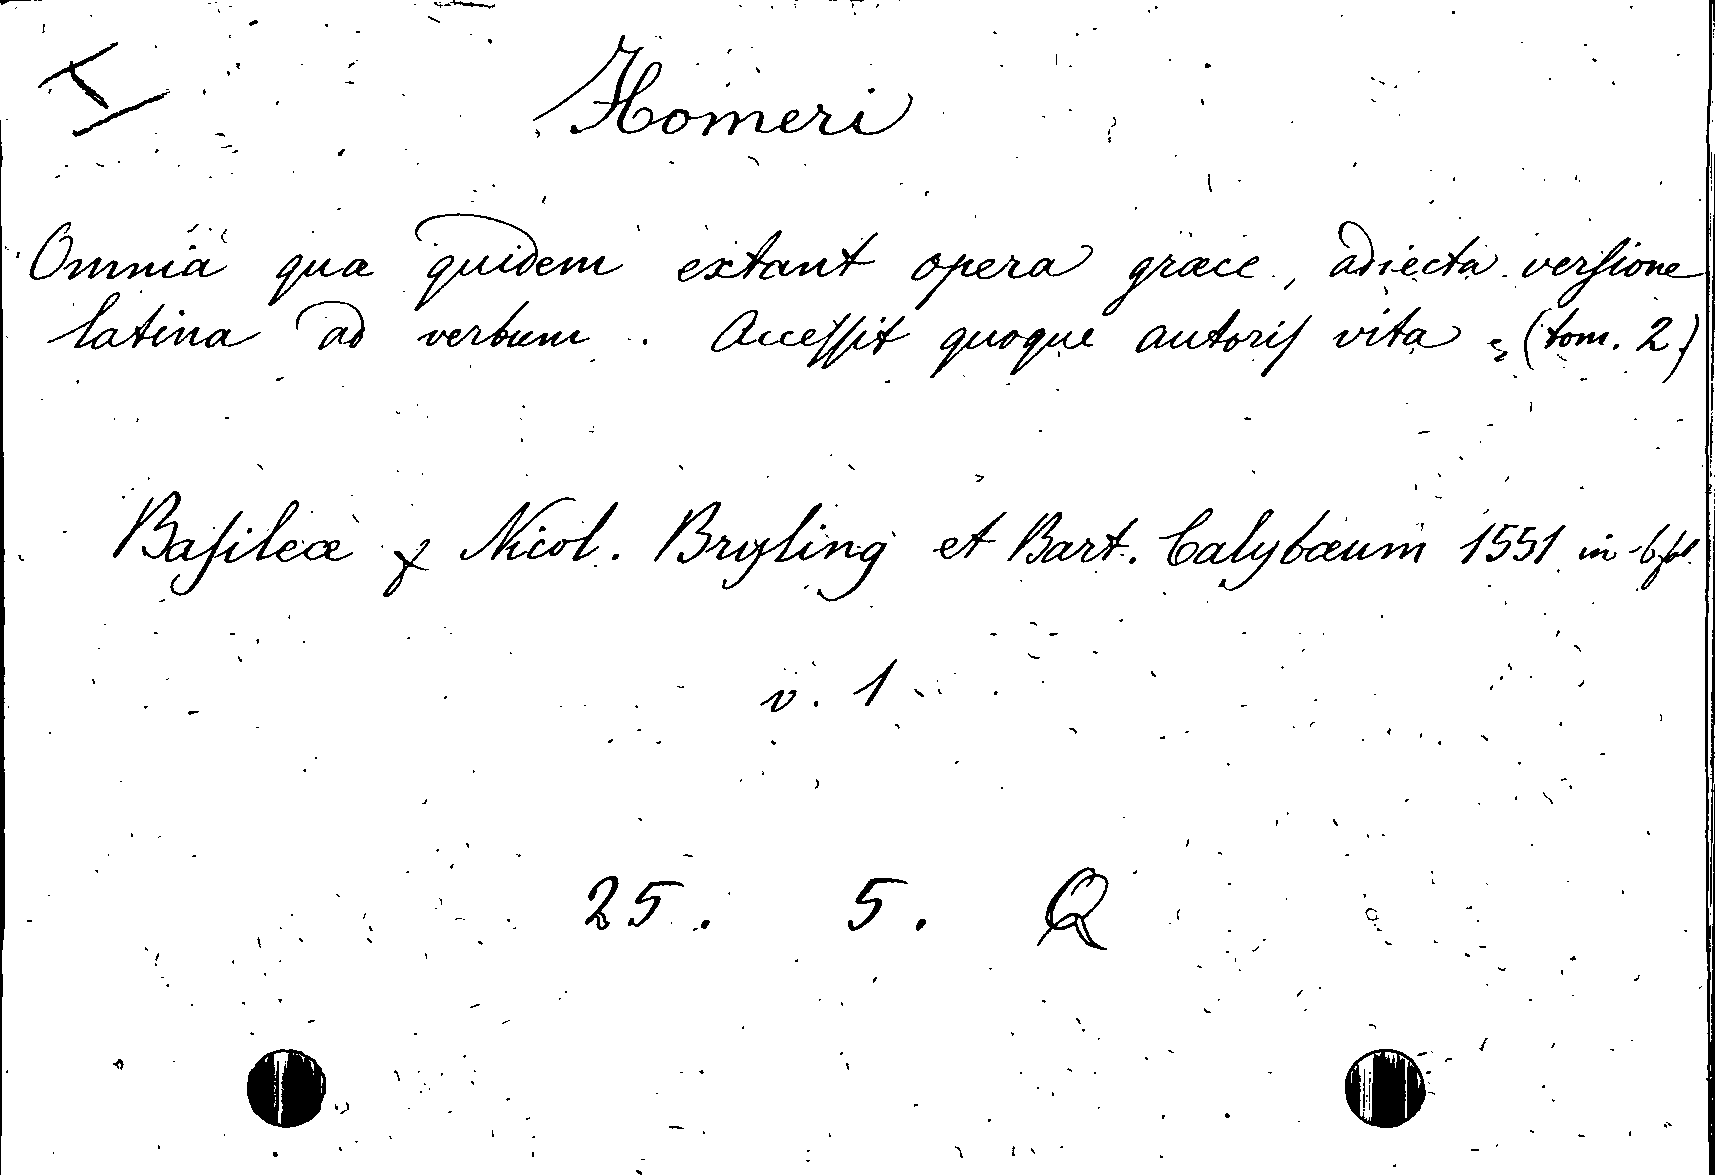 I
Homeri
Omnia quæ quidem extant opera græce, adiecta verſione
latina ad verbum. Acceſſit quoque autoriſ vita (tom. 2)
Baſileæ Nicol. Bryling et Bart. Calybæum 1551 in
v. 1
25. 5. Q